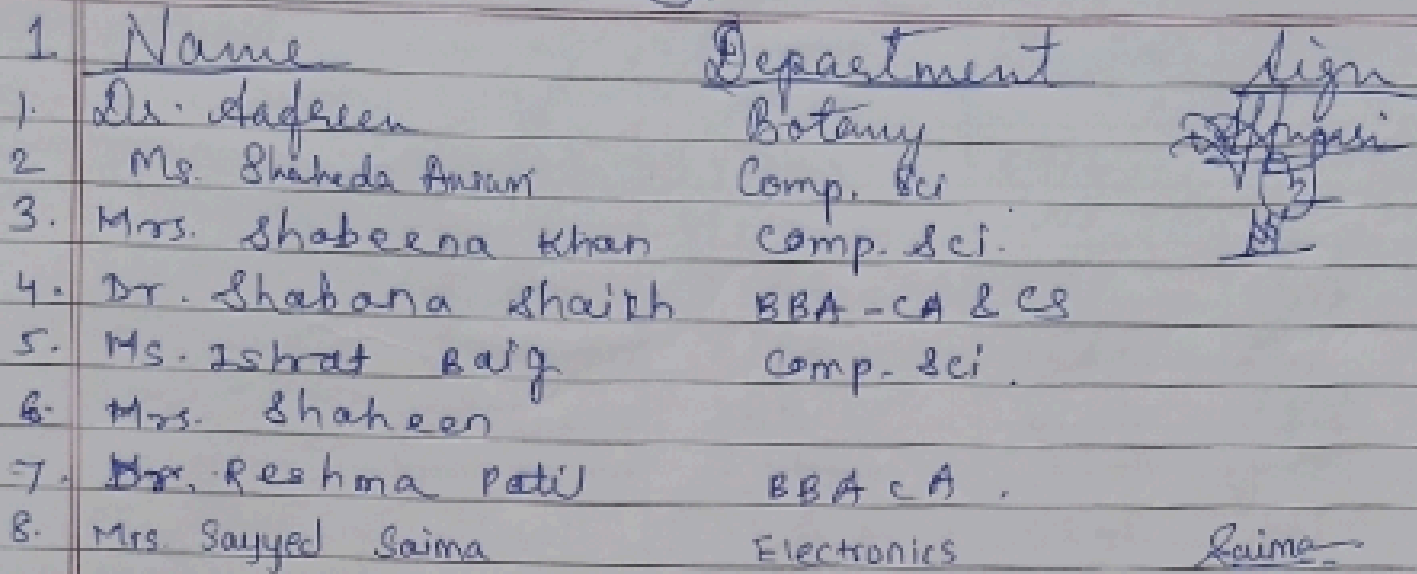 1 Name Department Sign
1. Dr. Aafreen Botany
2 Ms. Shaheda Ansari Comp. Sci
3. Mrs. Shabeena Khan Comp. Sci.
4. Dr. Shabana Shaikh BBA - CA & CS
5. Ms. Ishrat Baig Comp. Sci.
6. Mrs. Shaheen
7. Dr. Reshma Patil BBA CA.
8. Mrs Sayyed Saima Electronics Saima